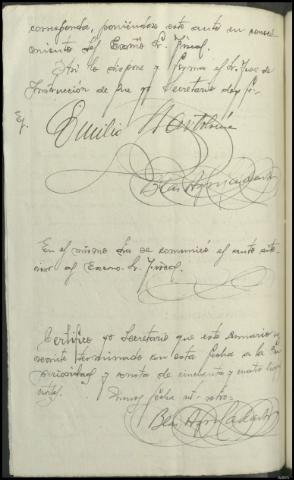 corresponda, poniéndose este auto en conoci-
miento del Excmo Sr. Fiscal.
Así lo dispone y firma el Sr. Juez de
Instrucción de que yo Secretario doy fe.
Emilio
Blas
En el mismo día se comunicó el auto ante-
rior al Excmo. Sr. Fiscal.
Certifico yo Secretario que este sumario se
remite terminado con esta fecha a la Su-
perioridad y consta de cincuenta y cuatro
fecha ut-retro=
Blas